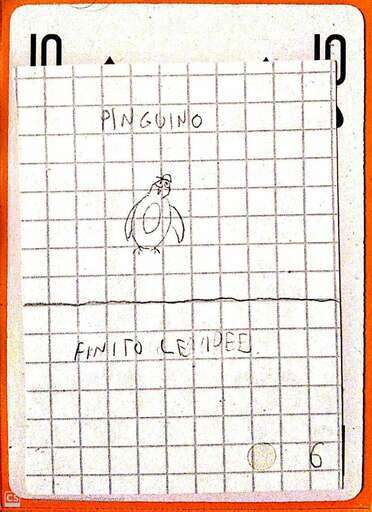 10 10
PINGUINO
FINITO LE IDEE
6
CS